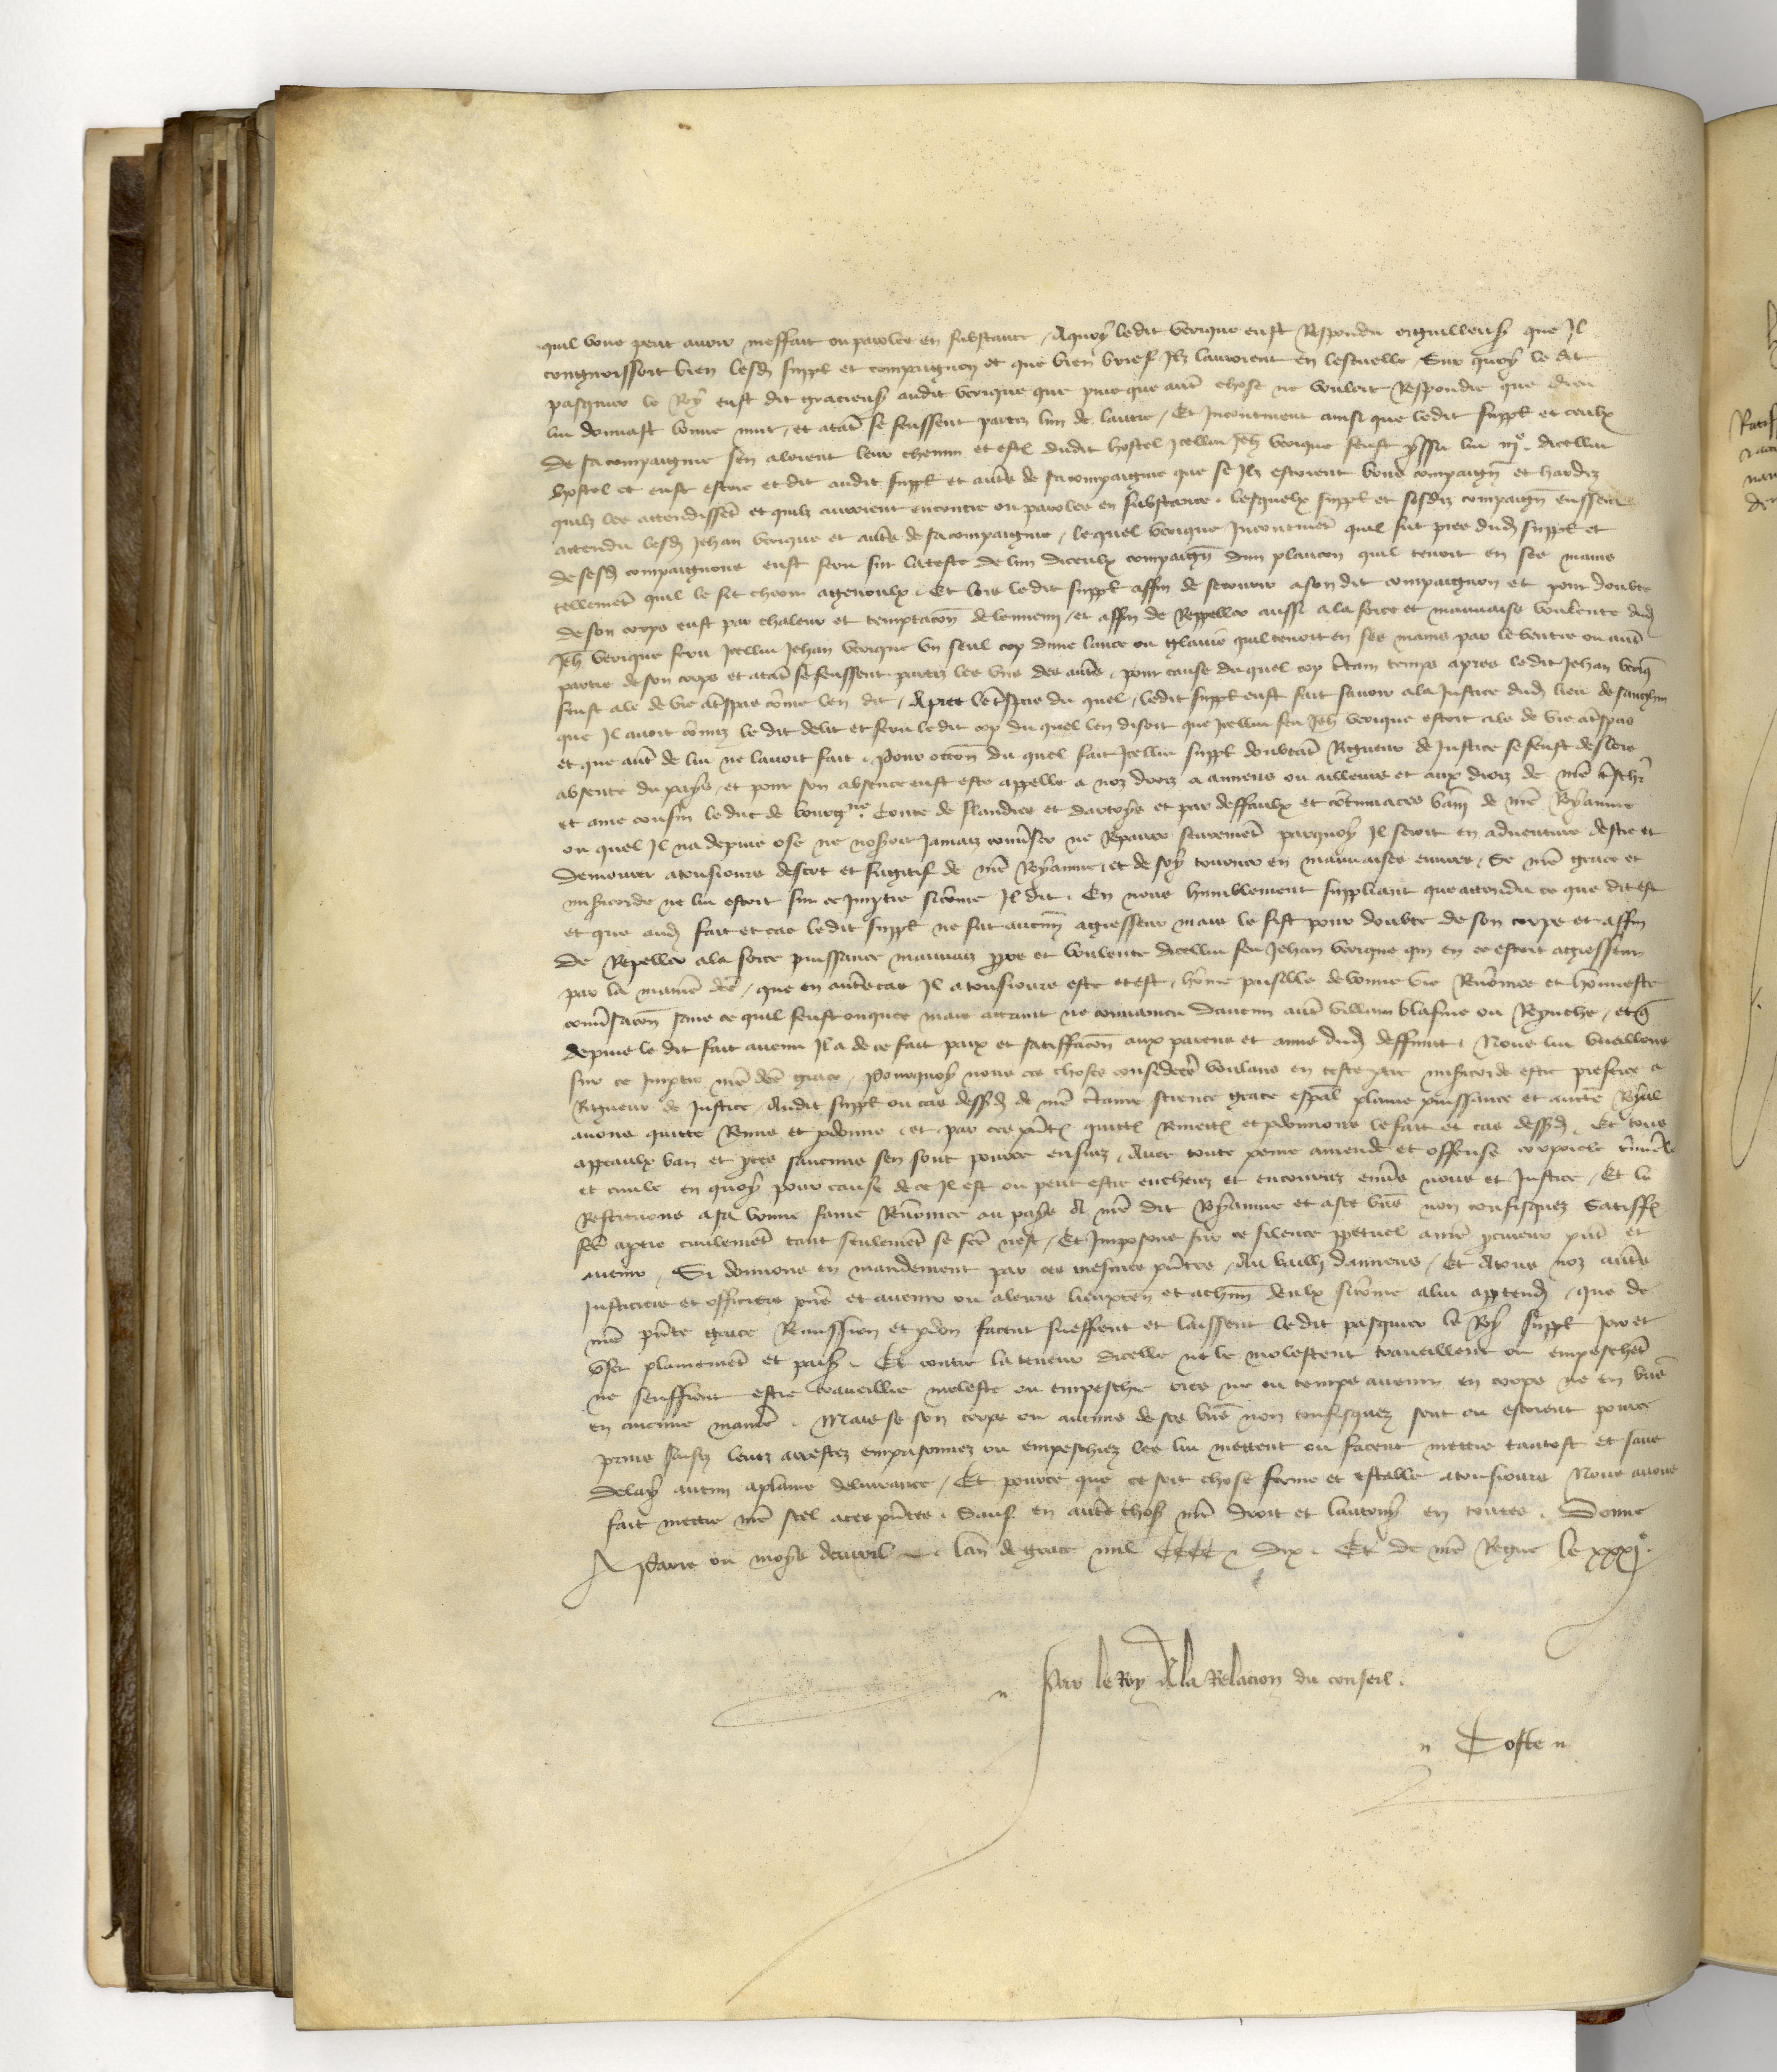 quil vous peut avoir meffait ou paroles en substance / Aquoy ledit verique eust Respondu orguilleusemt que Il
congnoissoit bien lesd suppl et compaignon et que bien brief Ilz lauroient en lescuelle Sur quoy le dit
pasquier le Roy eust dit gracieusemt audit verique que puis que autre chose ne vouloit Respondre que dieu
lui donnast bonne nuit / et atant se feussent partiz lun de lautre / Et Incontinent ainsi que ledit suppl et ceulx
de sa compaignie sen aloient leur chemin et dudit hostel Icellui Jeh verique feust yssu lui iije dicellui
hostel et eust escrie et dit audit suppl et autres de sa compaignie que se Ilz estoient bons compaigns et hardiz
quilz les attendissent et quilz auroient encontre ou paroles en substance . lesquelx suppl et sesdiz compaigns eussent
attendu lesd Jehan verique et autres de sa compaignie / lequel verique Incontinent quil fut pres dud suppl et
de sesd compaignons eust feru sur lateste de lun diceulx compaigns dun plancon quil tenoit en ses mains
tellement quil le fit cheoir agenoulx . Et lors ledit suppl affin de secourir a son dit compaignon et pour doubte
de son corps eust par chaleur et temptacon de lennemi / et affin de Reppeller aussi ala force et mauvaise voulente dud
Jeh verique feru Icellui Jehan verique un seul cop dune lance ou glaive quil tenoit en ses mains par le ventre ou autre
partie de son corps et atant se feussent partiz les uns des autres . pour cause duquel cop certain temps apres ledit Jehan veriq
feust ale de vie a trespas comme len dit / Apres le trespas du quel / ledit suppl eust fait savoir ala Justice dud lieu de
que Il avoit commis le dit delit et feru le dit cop du quel len disoit que Icellui feu Jeh verique estoit ale de vie a trespas
et que autre de lui ne lavoit fait . Pour occon du quel fait Icellui suppl doubtant Rigueur de Justice se feust deslors
absente du pays / et pour son absence eust este appelle a noz droiz a amiens ou ailleurs et aux droiz de nre treschr
et ame cousin le duc de bourgne Conte de flandres et dartoys et par deffaulx et contumaces bany de nre Royaume
ou quel Il na depuis ose ne noseroit Jamais converser ne Reparer seurement parquoy Il seroit en adventure destre et
demourer atousjours desert et fugitif de nre Royaume / et de soy tourner en mauvaises euvres / Se nre grace et
misericorde ne lui estoit sur ce Impartie sicomme Il dit . En nous humblement suppliant que attendu ce que dit est
et que oud fait et cas ledit suppl ne fut aucunemt agresseur mais le fist pour doubte de son corps et affin
de Repeller ala force puissance mauvaiz propos et voulente dicellui feu Jehan verique qui en ce estoit agresseur
par la maniere dicte / que en autres cas Il a tousjours este et est / homme paisible de bonne vie Renommee et honneste
conversacon sans ce quil feust onques mais attaint ne convaincu daucun autre villain blasme ou Reprouche / et q
depuis le dit fait avenu Il a de ce fait paix et satisfacon aux parens et amis dud deffunct . Nous lui vueillons
sur ce Impartir nre dicte grace / Pourquoy nous ces choses considerees voulans en ceste partie misericorde estre preferee a
Rigueur de Justice / Audit suppl ou cas dessusd de nre certaine science grace especial plaine puissance et auctorite Royal
avons quitte Remis et pardonne . et par ces presentes quictons Remettons et pardonnons le fait et cas dessusd . Et tous
appeaulx ban et proces saucuns sen sont pource ensuiz . Avec toute peine amende et offense corporele criminele
et civile en quoy pour cause de ce Il est ou peut estre encheuz et encouruz envers nous et Justice . Et le
Restituons a sa bonne fame Renommee au pays A nre dit Royaume et a ses biens non confisquez Satisffon
faicte a partie civilement tant seulement se faicte nest / Et Imposons sur ce silence perpetuel a nre procureur present et
avenir / Si donnons en mandement par ces mesmes presentes / Au bailli damiens / Et Atous noz autres
Justiciers et officiers presens et avenir ou aleurs lieuxtenans et achun deulx sicomme alui appartendra / que de
nre presente grace Remission et pardon facent sueffrent et laissent ledit pasquier le Roy suppl Joir et
user plainement et paisiblemt . Et contre la teneur dicelle ne le molestent traveillent ou empeschent
ne seuffrent estre traveillie moleste ou empeschie ores ne ou temps avenir en corps ne en biens
en aucune maniere . Mais se son corps ou aucuns de ses biens non confisquez sont ou estoient pource
prins saisiz levez arrestez emprisonnez ou empeschiez les lui mettent ou facent mettre tantost et sans
delay aucun a plaine delivrance / Et pource que ce soit chose ferme et estable atousjours Nous avons
fait mettre nre scel a ces presentes . Sauf en autres choses nre droit et lautruy en toutes . Donne
A Paris ou moys davril . lan de grace mil CCCC . Dix . Et de nre Regne le xxxje
Par le Roy A la Relacion du conseil .
Coste